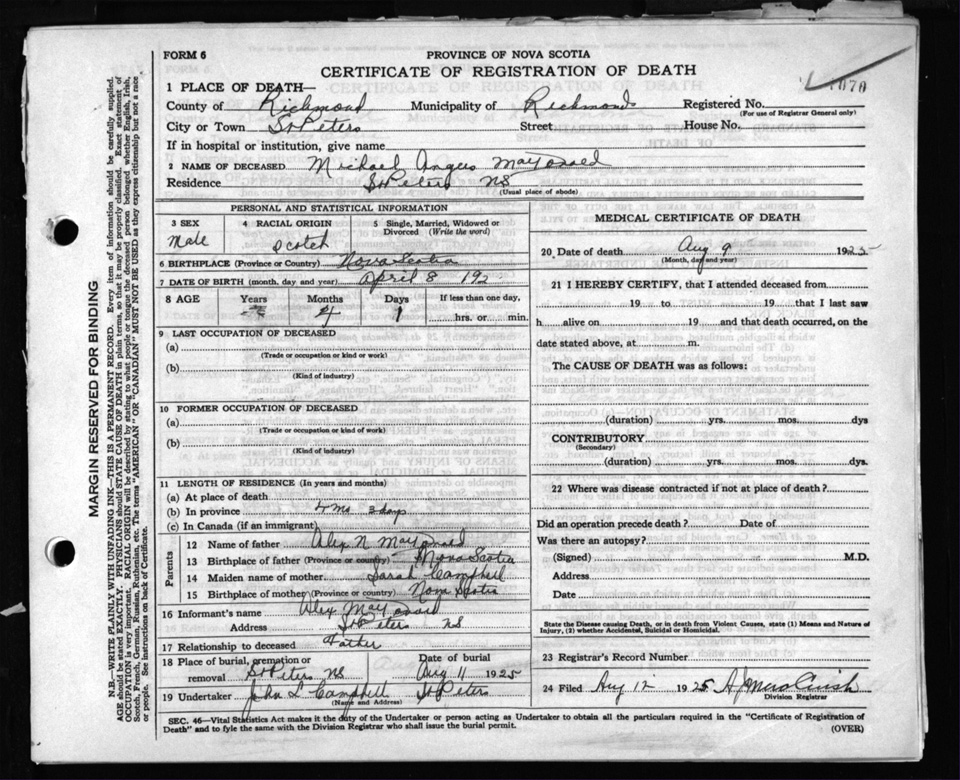 FORM 6
PROVINCE OF NOVA SCOTIA
CERTIFICATE OF REGISTRATION OF DEATH
1070
1 PLACE OF DEATH—
County of Richmond Municipality of Richmond Registered No.
(For use of Registrar General only)
City or Town St Peters Street House No.
If in hospital or institution, give name
2 NAME OF DECEASED Michael Angus
Residence St Peters NS
(Usual place of abode)
PERSONAL AND STATISTICAL INFORMATION
3 SEX Male
4 RACIAL ORIGIN Scotch
5 Single, Married, Widowed or Divorced (Write the word)
6 BIRTHPLACE (Province or Country) Nova Scotia
7 DATE OF BIRTH (month, day, and year) April 8 192
8 AGE Years Months Days If less than one day,
4 1 hrs. or min.
9 LAST OCCUPATION OF DECEASED
(a)
(Trade or occupation or kind or work)
(b)
(Kind of industry)
10 FORMER OCCUPATION OF DECEASED
(a)
(Trade or occupation or kind or work)
(b)
(Kind of industry)
11 LENGTH OF RESIDENCE (In years and months)
(a) At place of death
(b) In province 4 mo 3 days
(c) In Canada (if an immigrant)
Parents
12 Name of father Alex N
13 Birthplace of father (Province or country) Nova Scotia
14 Maiden name of mother Sarah Campbell
15 Birthplace of mother (Province or country) Nova Scotia
16 Informant's name Alex
Address St Peters NS
17 Relationship to deceased Father
18 Place of burial, cremation or removal St Peters NS Date of burial Aug 11 1925
19 Undertaker John L Campbell St Peters
(Name and Address)
MEDICAL CERTIFICATE OF DEATH
20 Date of death Aug 9 1925
(Month, day and year)
21 I HEREBY CERTIFY, that I attended deceased from
19 to 19 that I last saw
h alive on 19 and that death occurred, on the
date stated above, at m.
The CAUSE OF DEATH was as follows:
(duration) yrs. mos. dys
CONTRIBUTORY
(Secondary)
(duration) yrs. mos. dys.
22 Where was disease contracted if not at place of death?
Did an operation precede death? Date of
Was there an autopsy?
(Signed) M.D.
Address
Date
State the Disease causing Death, or in death from Violent Causes, state (1) Means and Nature of
Injury, (2) whether Accidental, Suicidal or Homicidal.
23 Registrar's Record Number
24 Filed Aug 12 1925
Division Registrar
SEC. 46—Vital Statistics Act makes it the duty of the Undertaker or person acting as Undertaker to obtain all the particulars required in the "Certificate of Registration of
Death" and to fyle the same with the Division Registrar who shall issue the burial permit. (OVER)
MARGIN RESERVED FOR BINDING
N.B.—WRITE PLAINLY WITH UNFADING INK—THIS IS A PERMANENT RECORD. Every item of information should be carefully supplied.
AGE should be stated EXACTLY. PHYSICIANS should STATE CAUSE OF DEATH in plain terms, so that it may be properly classified. Exact statement of
OCCUPATION is very important. RACIAL ORIGIN will be described by stating to what people or tongue the deceased person belonged, whether English, Irish,
Scotch, French, German, Russian, Ruthenian, etc. The terms "AMERICAN" OR "CANADIAN" MUST NOT BE USED as they express citizenship but not a race
or people. See instructions on back of Certificate.